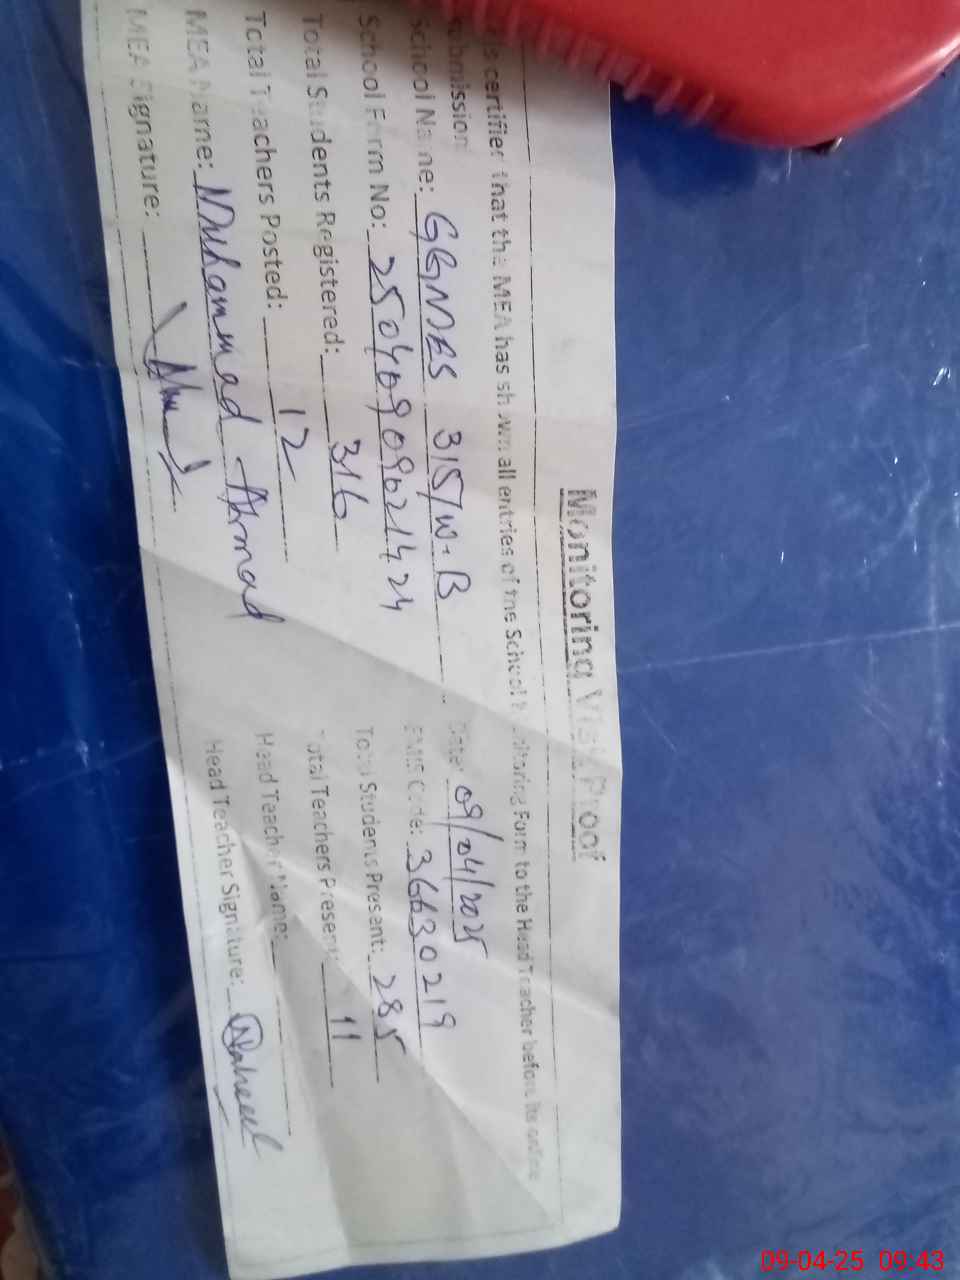 Monitoring Visit Proof
is certified that the MEA has shown all entries of the School Monitoring Form to the Head Teacher before its online
submission
School Name: GGMES 315/W.B Date: 09/04/2025
School Form No: 25040909021424 EMIS Code: 36630219
Total Students Registered: 316 Total Students Present: 285
Total Teachers Posted: 12 Total Teachers Present: 11
MEA Name: Muhammad Ahmad Head Teacher Name:
MEA Signature: Head Teacher Signature: Naheed
09-04-25 09:43